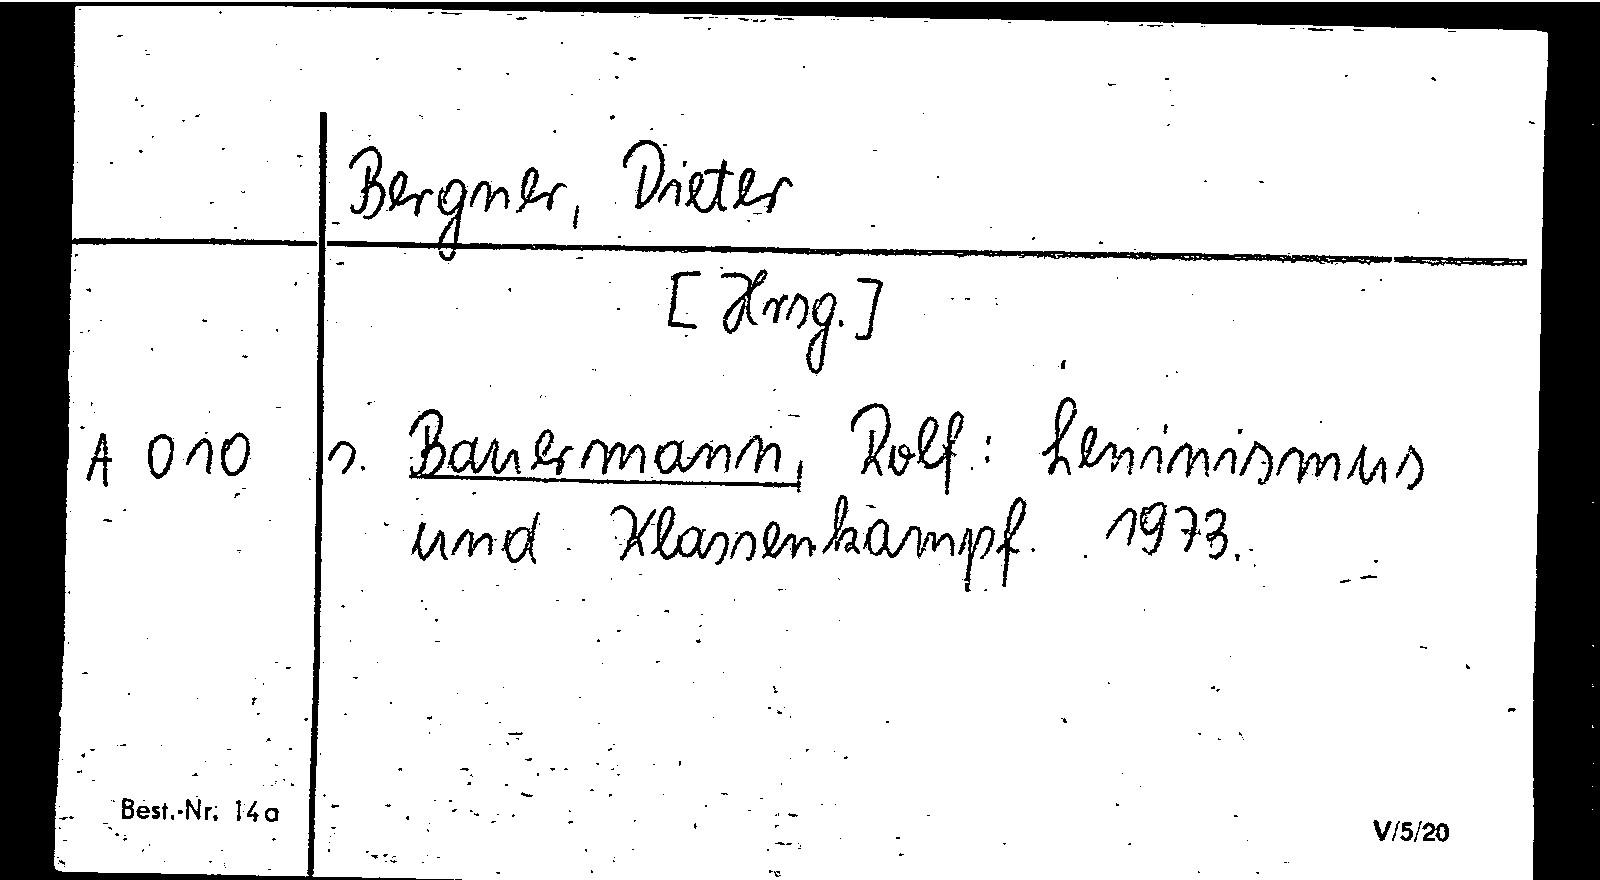 Bergner, Dieter
[Hrsg.]
A 010 s. Bauermann, Rolf: Leninismus
und Klassenkampf. 1973.
Best.-Nr. 14a
V/5/20